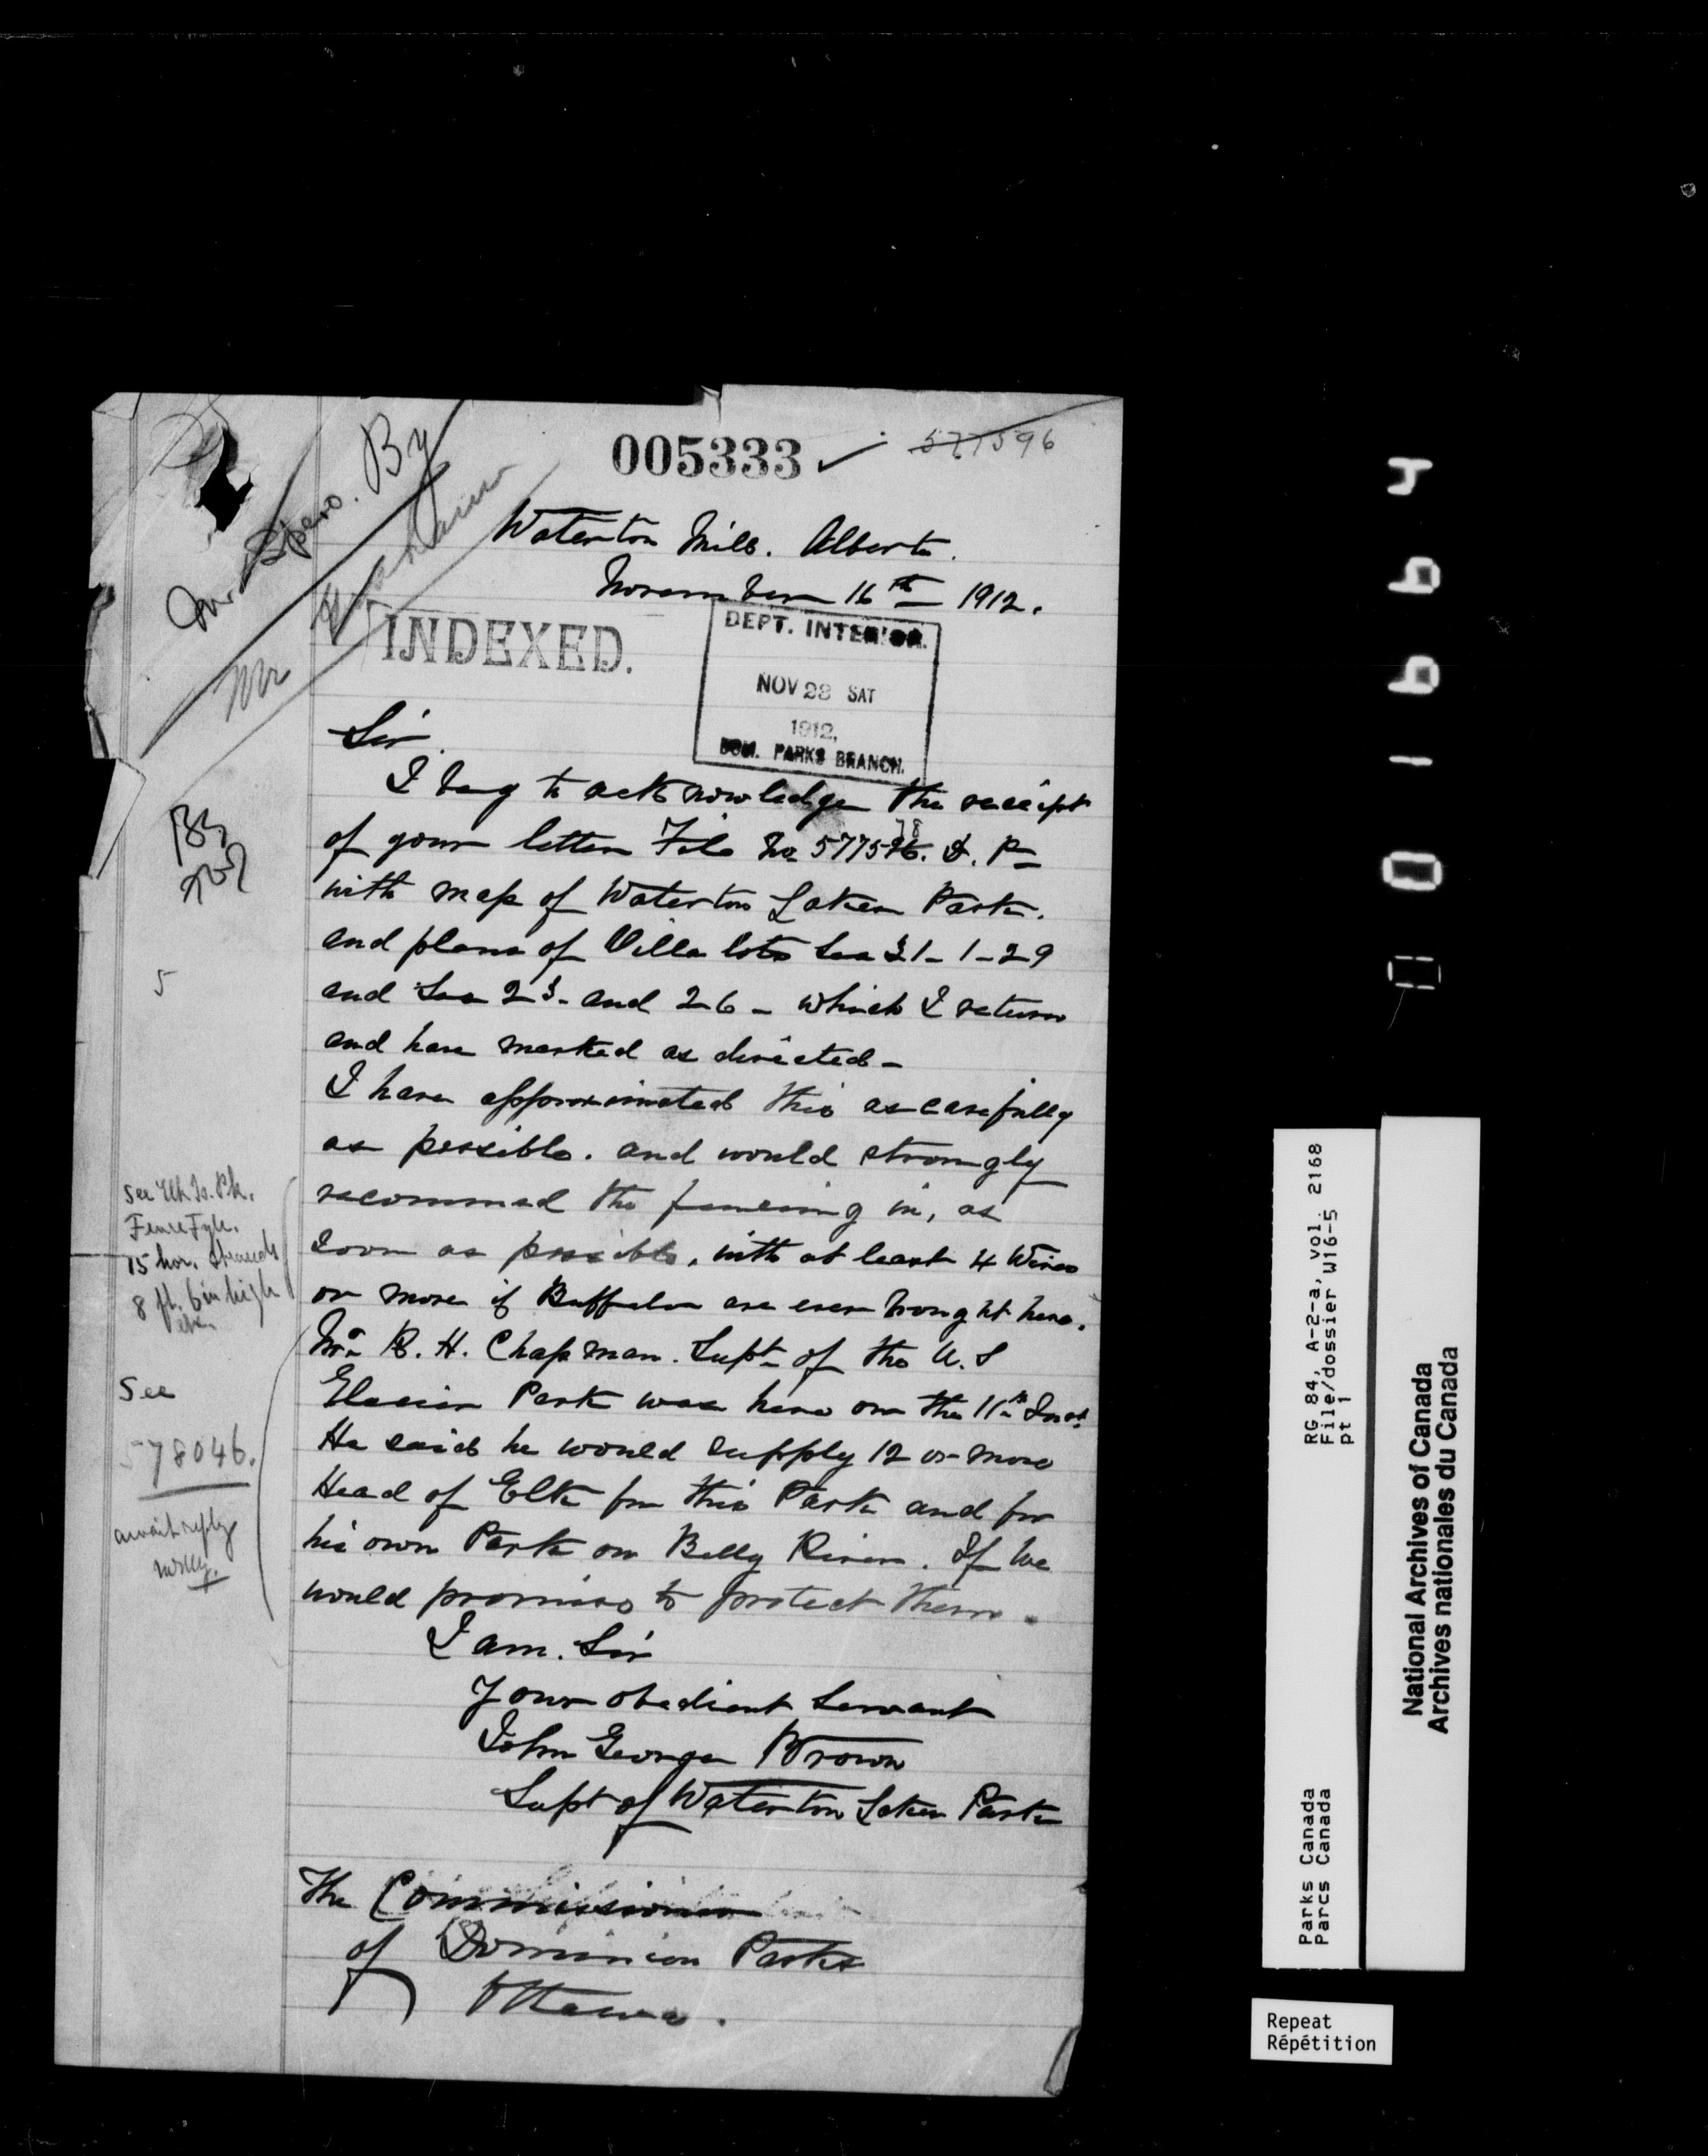 005333 ✓ 577596
Mr. Spero. By
Mr
Waterton Mills. Alberta.
November 16th 1912.
INDEXED.
DEPT. INTERIOR.
NOV 23 SAT
1912,
DOM. PARKS BRANCH.
Sir.
I beg to acknowledge the receipt
of your letter File No 577596. D. P-
78
with map of Waterton Lakes Park.
and plans of Villa lots Sec 31-1-29
and Sec 23- and 26- which I return
and have marked as directed-
I have approximated this as carefully
as possible. and would strongly
recommed the fencing in, as
soon as possible, with at least 4 Wires
or more if Buffalo are ever brought here.
Mr R. H. Chapman. Supt- of the U.S
Glacier Park was here on the 11th Inst.
He said he would supply 12 or more
Head of Elk for this Park and for
his own Park on Belly River. If we
would promise to protect them.
I am. Sir
Your obedient Servant
John George Brown
Supt of Waterton Lakes Park
The Commissioner
of Dominion Parks
Ottawa.
5
See Elk Is. Pk.
Fence Fyle.
15 hor. strands
8 ft. 6 in high
See
578046.
await reply
RG 84, A-2-a, vol. 2168
File/dossier W16-5
pt 1
Parks Canada
Parcs Canada
National Archives of Canada
Archives nationales du Canada
Repeat
Répétition